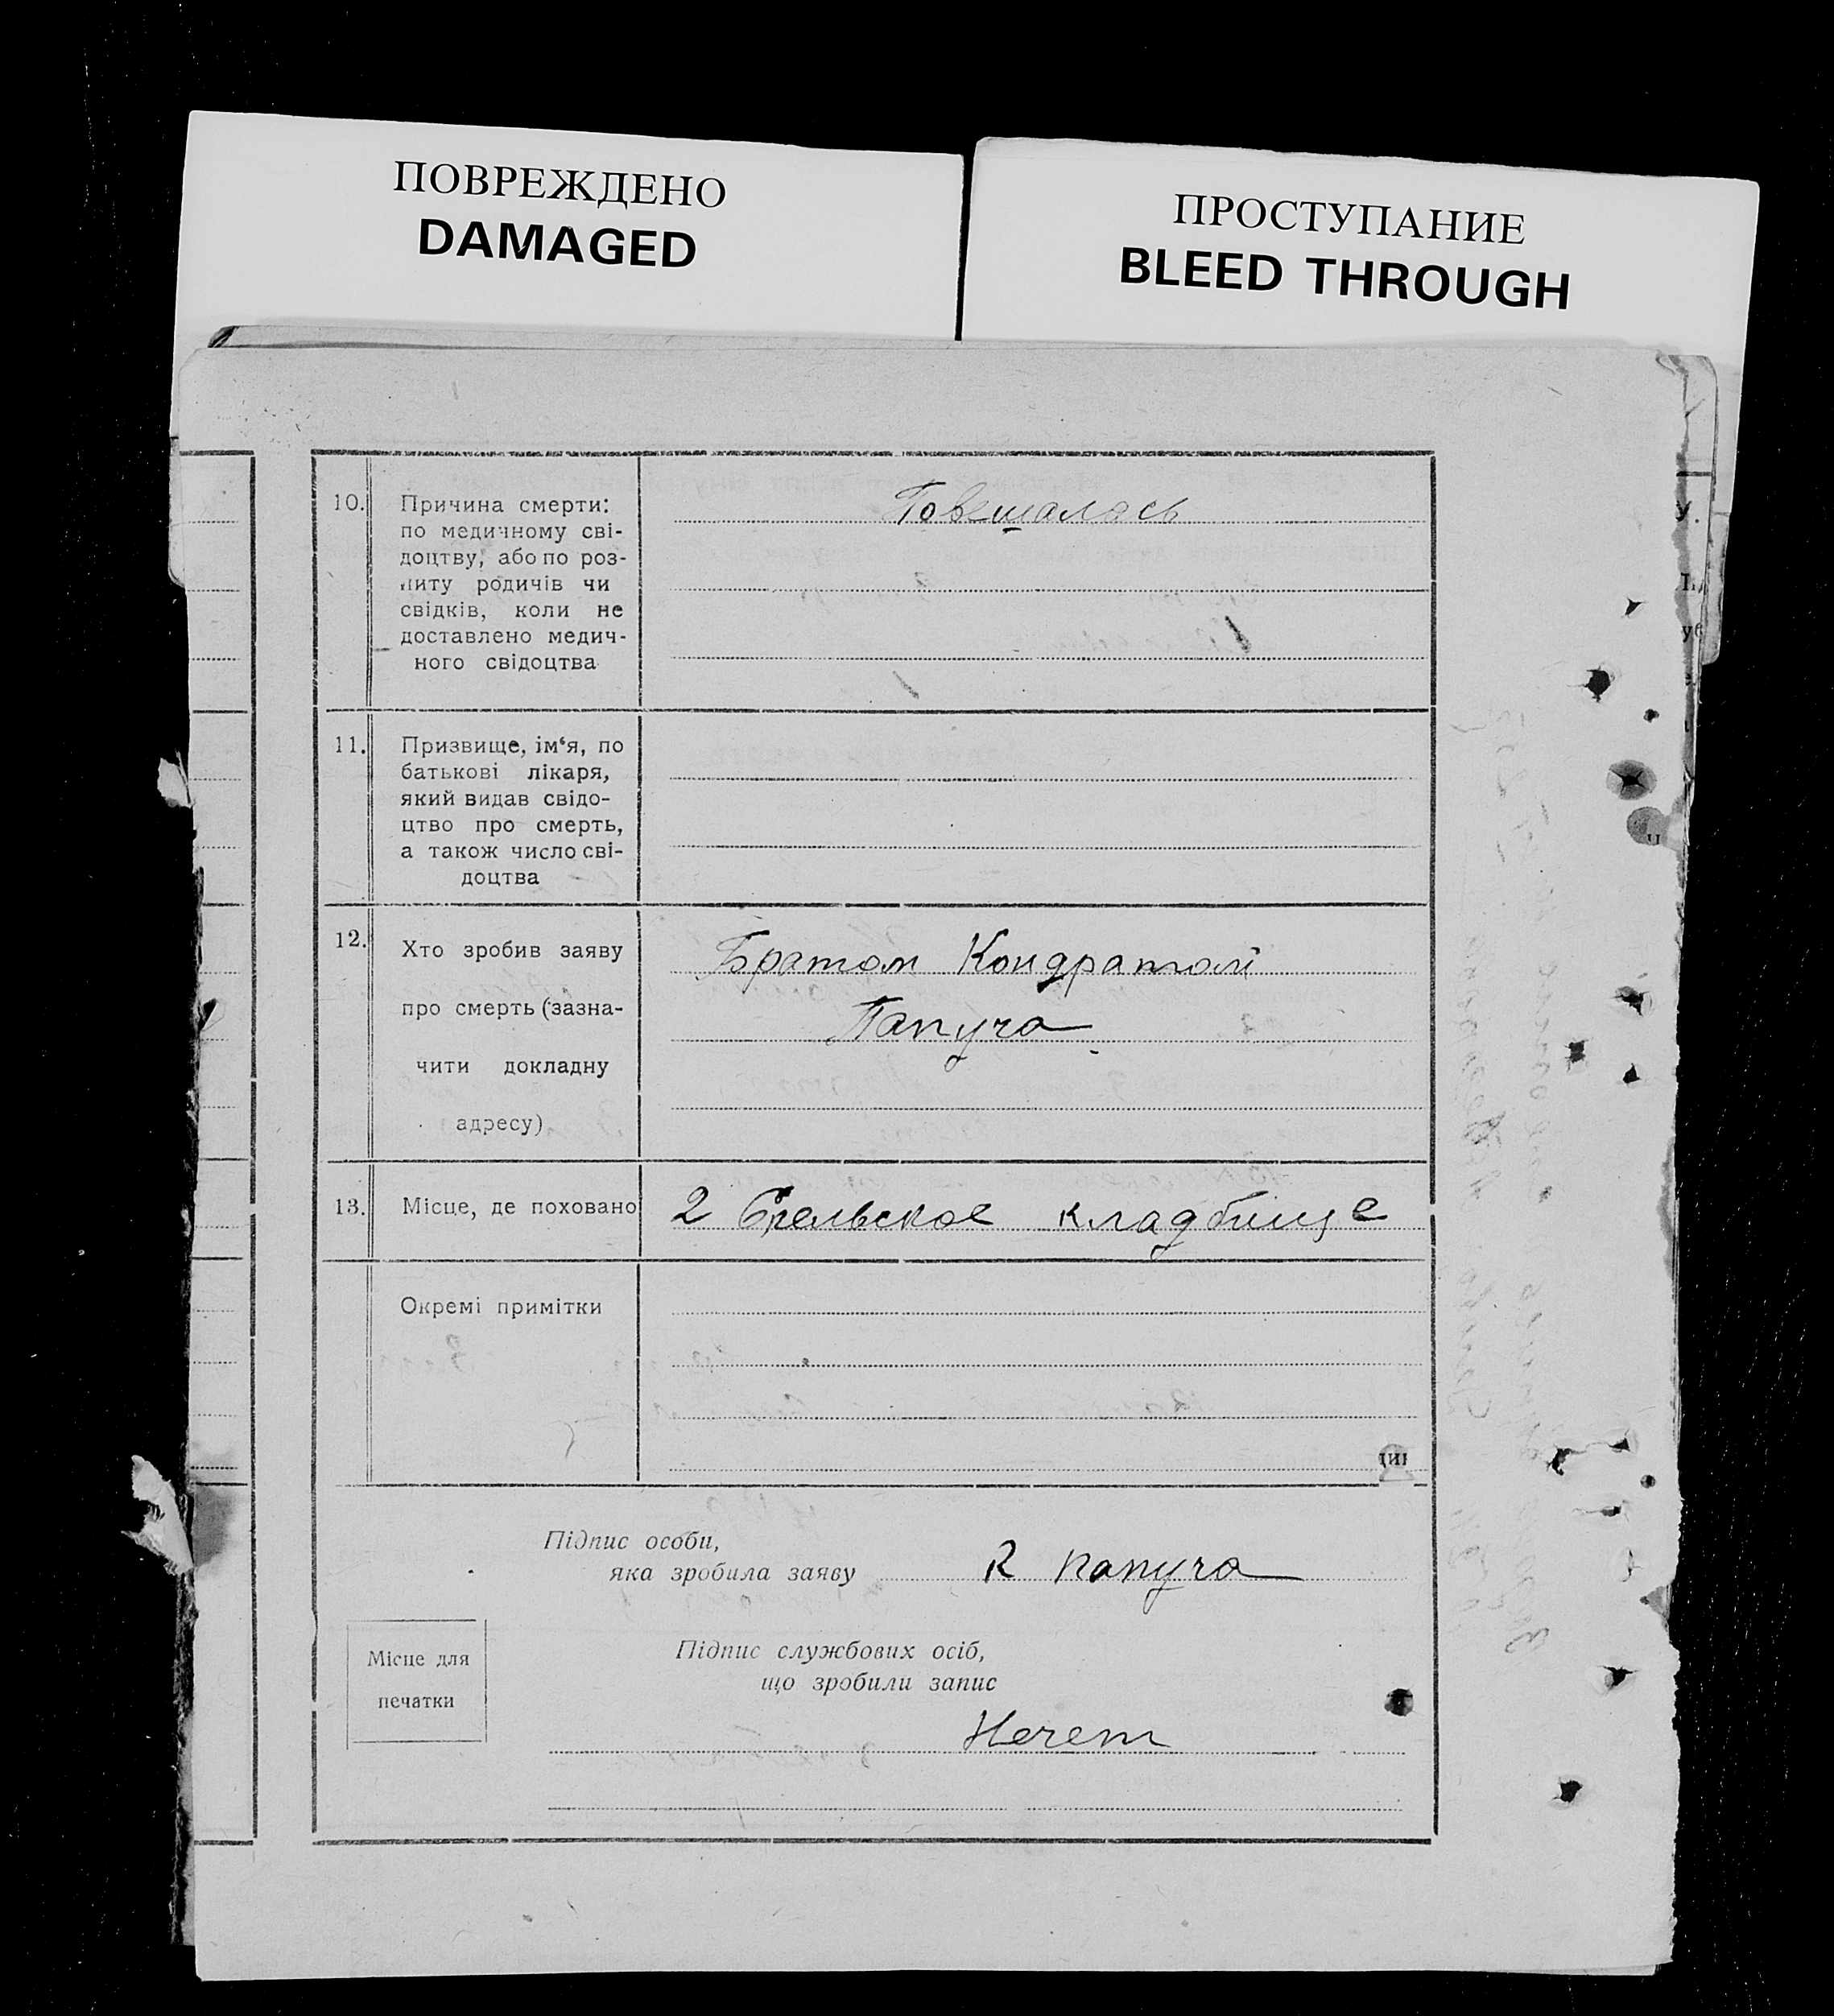 ПОВРЕЖДЕНО
DAMAGED
ПРОСТУПАНИЕ
BLEED THROUGH
10. Причина смерти:
по медичному сві-
доцтву, або по роз-
питу родичів чи
свідків, коли не
доставлено медич-
ного свідоцтва
Повешалась
11. Призвище, ім‘я, по
батькові лікаря,
який видав свідо-
цтво про смерть,
а також число сві-
доцтва
12. Хто зробив заяву
про смерть (зазна-
чити докладну
адресу)
Братом Кондратом
Папуча
13. Місце, де поховано
2 кладбище
Окремі примітки
Підпис особи,
яка зробила заяву
К папуча
Місце для
печатки
Підпис службових осіб,
що зробили запис